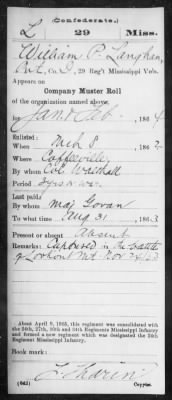 (Confederate.)
L 29 Miss.
William P. Langham
Pvt, Co. D, 29 Reg't Mississippi Vols.
Appears on
Company Muster Roll
of the organization named above,
for Jan & Feb, 1864
Enlisted:
When Mch 8, 1862
Where Coffeeville
By whom Col Walthall
Period 3 yrs or war
Last paid:
By whom Maj Govan
To what time Aug 31, 1863
Present or absent Absent
Remarks: Captured in the battle
of Lookout Mt Nov 24/63
About April 9, 1865, this regiment was consolidated with
the 24th, 27th, 30th and 34th Regiments Mississippi Infantry
and formed a new regiment which was designated the 24th
Regiment Mississippi Infantry.
Book mark:
(642)
Copyist.